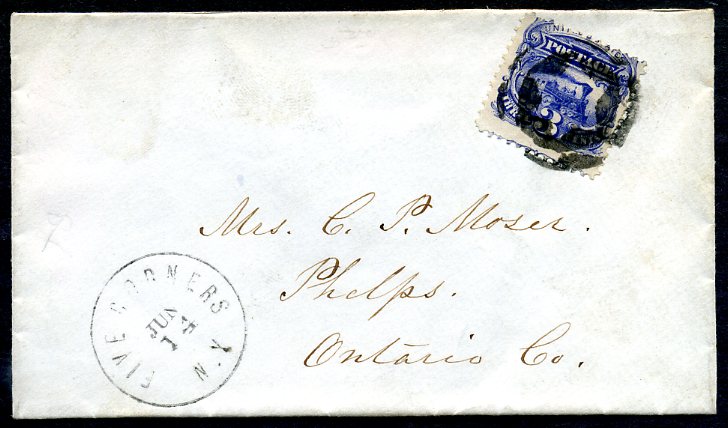 UNITED STATES
POSTAGE
3
Mrs. C. P. Moser.
Phelps.
Ontario Co.
FIVE CORNERS N.Y
JUN
1